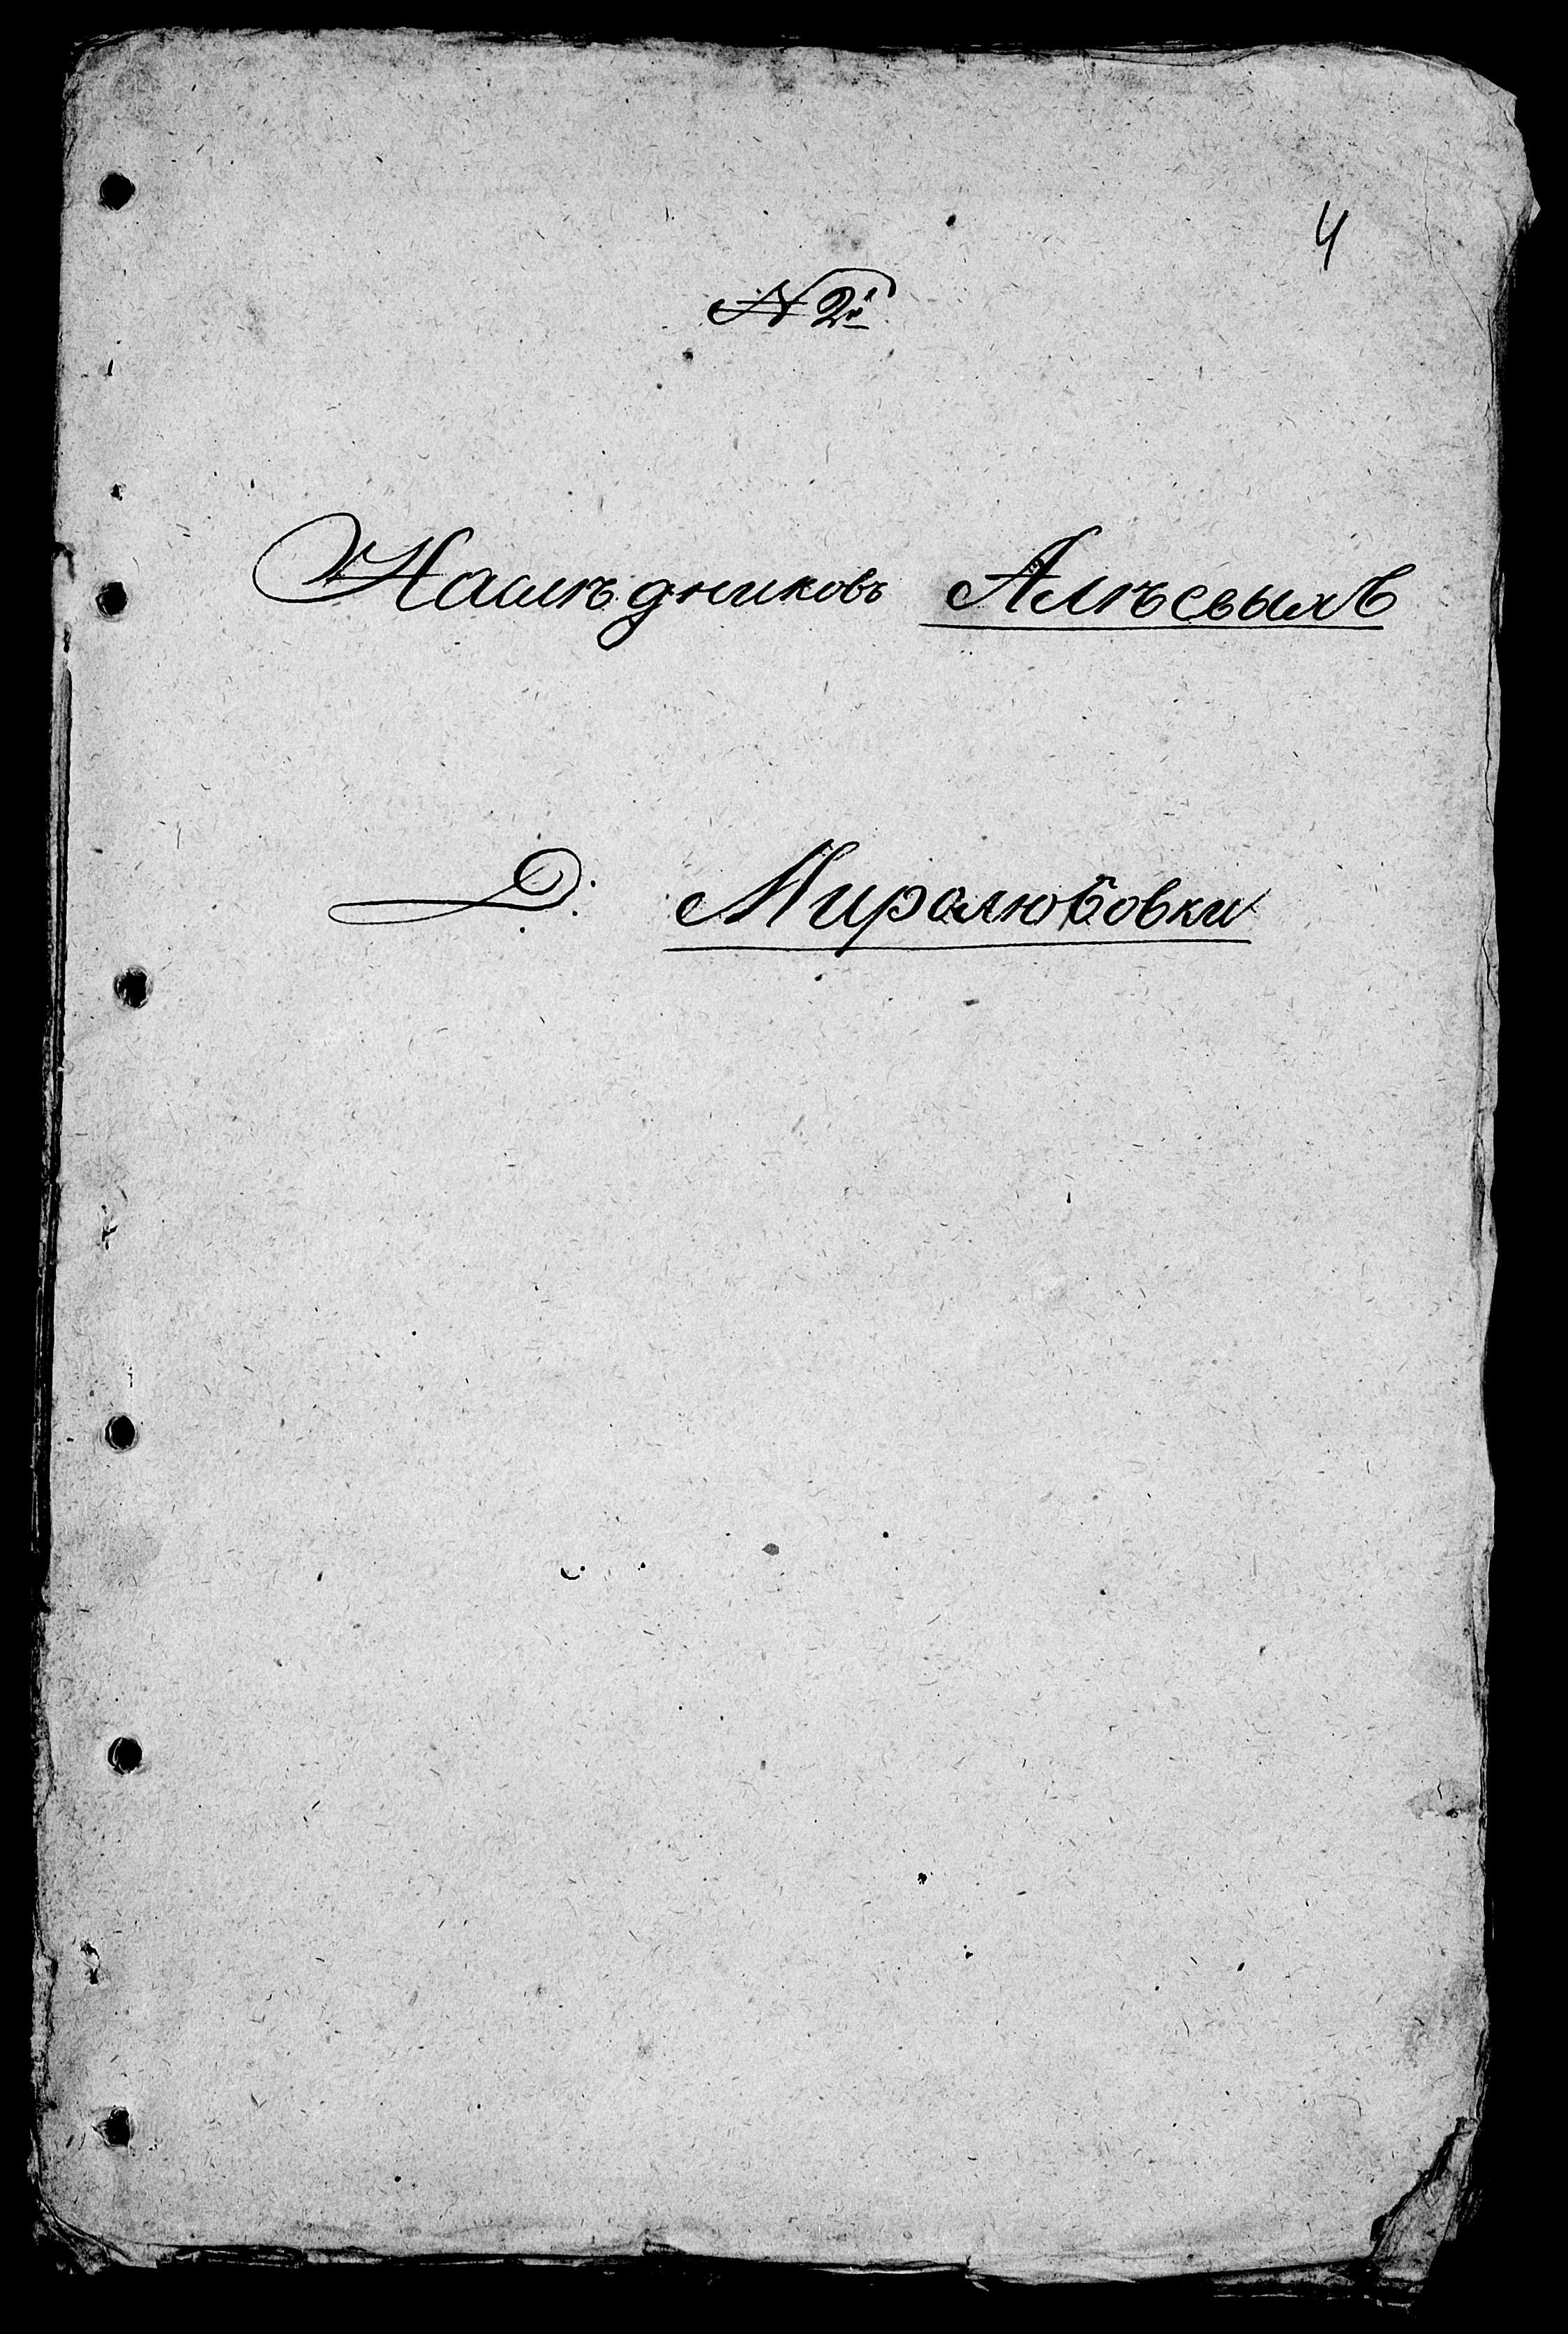 4
№ 2й
Наслѣдниковъ Алѣевыхъ
Д. Миролюбовки